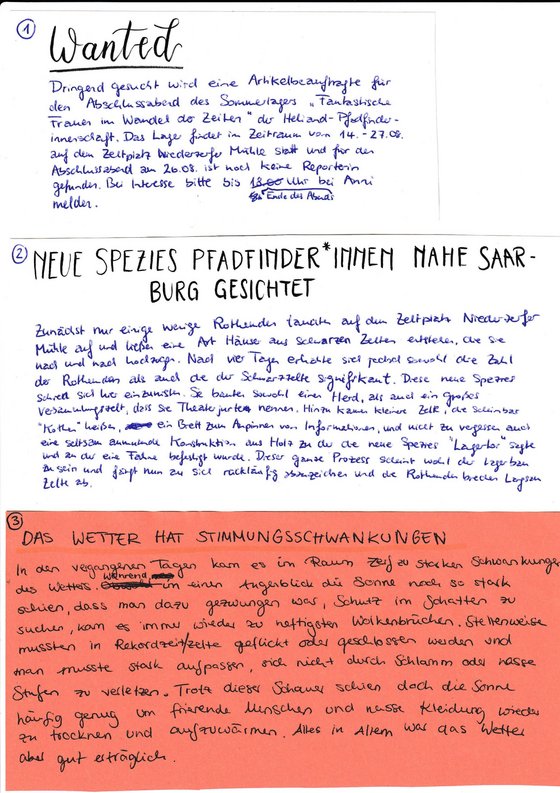 1
Wanted
Dringend gesucht wird eine Artikelbeauftragte für
den Abschlussabend des Sommerlagers „Fantastische
Frauen im Wandel der Zeiten" der Heliand-Pfadfinder-
innerschaft. Das Lager findet im Zeitraum vom 14.-27.08.
auf dem Zeltplatz Niederzerfer Mühle statt und für den
Abschlussabend am 26.08. ist noch keine Reporterin
gefunden. Bei Interesse bitte bis 18.00 Uhr bei Anni
Ende des Abends
melden.
2
NEUE SPEZIES PFADFINDER*INNEN NAHE SAAR-
BURG GESICHTET
Zunächst nur einige wenige Rothemden tauchten auf dem Zeltplatz Niederzerfer
Mühle auf und ließen eine Art Häuser aus schwarzen Zelten entstehen, die sie
nach und nach hochzogen. Nach vier Tagen erhöhte sich jedoch sowohl die Zahl
der Rothemden als auch die der Schwarzzelte signifikant. Diese neue Spezies
schien sich hier einzunisten. Sie bauten sowohl einen Herd, als auch ein großes
Versammlungszelt, dass sie Theaterjurte nennen. Hinzu kamen kleinere Zelte, die scheinbar
"Kothen" heißen, ein Brett zum Anpinnen von Informationen, und nicht zu vergessen auch
eine seltsam anmutende Konstruktion aus Holz zu der die neue Spezies "Lagertor" sagte
und an der eine Fahne befestigt wurde. Dieser ganze Prozess scheint wohl der Lagerbau
zu sein und fängt nun an sich rückläufig abzuzeichnen und die Rothemden brechen langsam
Zelte ab.
3
DAS WETTER HAT STIMMUNGSSCHWANKUNGEN
In den vergangenen Tagen kam es im Raum Zerf zu starken Schwankungen
des Wetters. Während im einen Augenblick die Sonne noch so stark
schien, dass man dazu gezwungen war, Schutz im Schatten zu
suchen, kam es immer wieder zu heftigsten Wolkenbrüchen. Stellenweise
mussten in Rekordzeit Zelte geflickt oder geschlossen werden und
man musste stark aufpassen, sich nicht durch Schlamm oder nasse
Stufen zu verletzen. Trotz dieser Schauer schien doch die Sonne
häufig genug um frierende Menschen und nasse Kleidung wieder
zu trocknen und aufzuwärmen. Alles in Allem war das Wetter
aber gut erträglich.